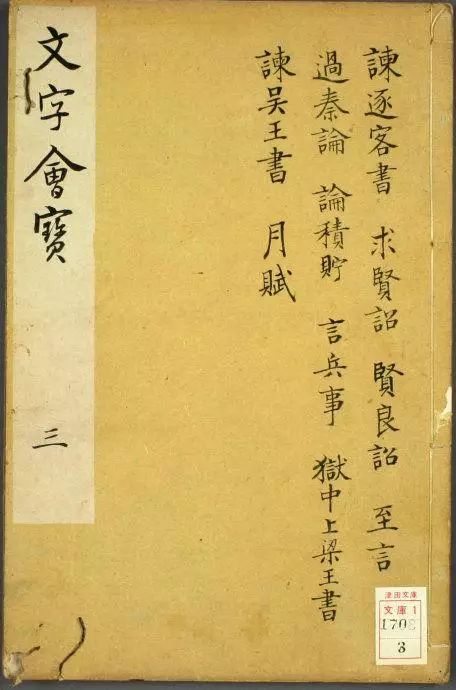 諫逐客書 求賢詔 賢良詔 至言
過秦論 論積貯 言兵事 獄中上梁王書
諫吴王書 月賦
文字會寳
三
津田文庫
文庫1
3